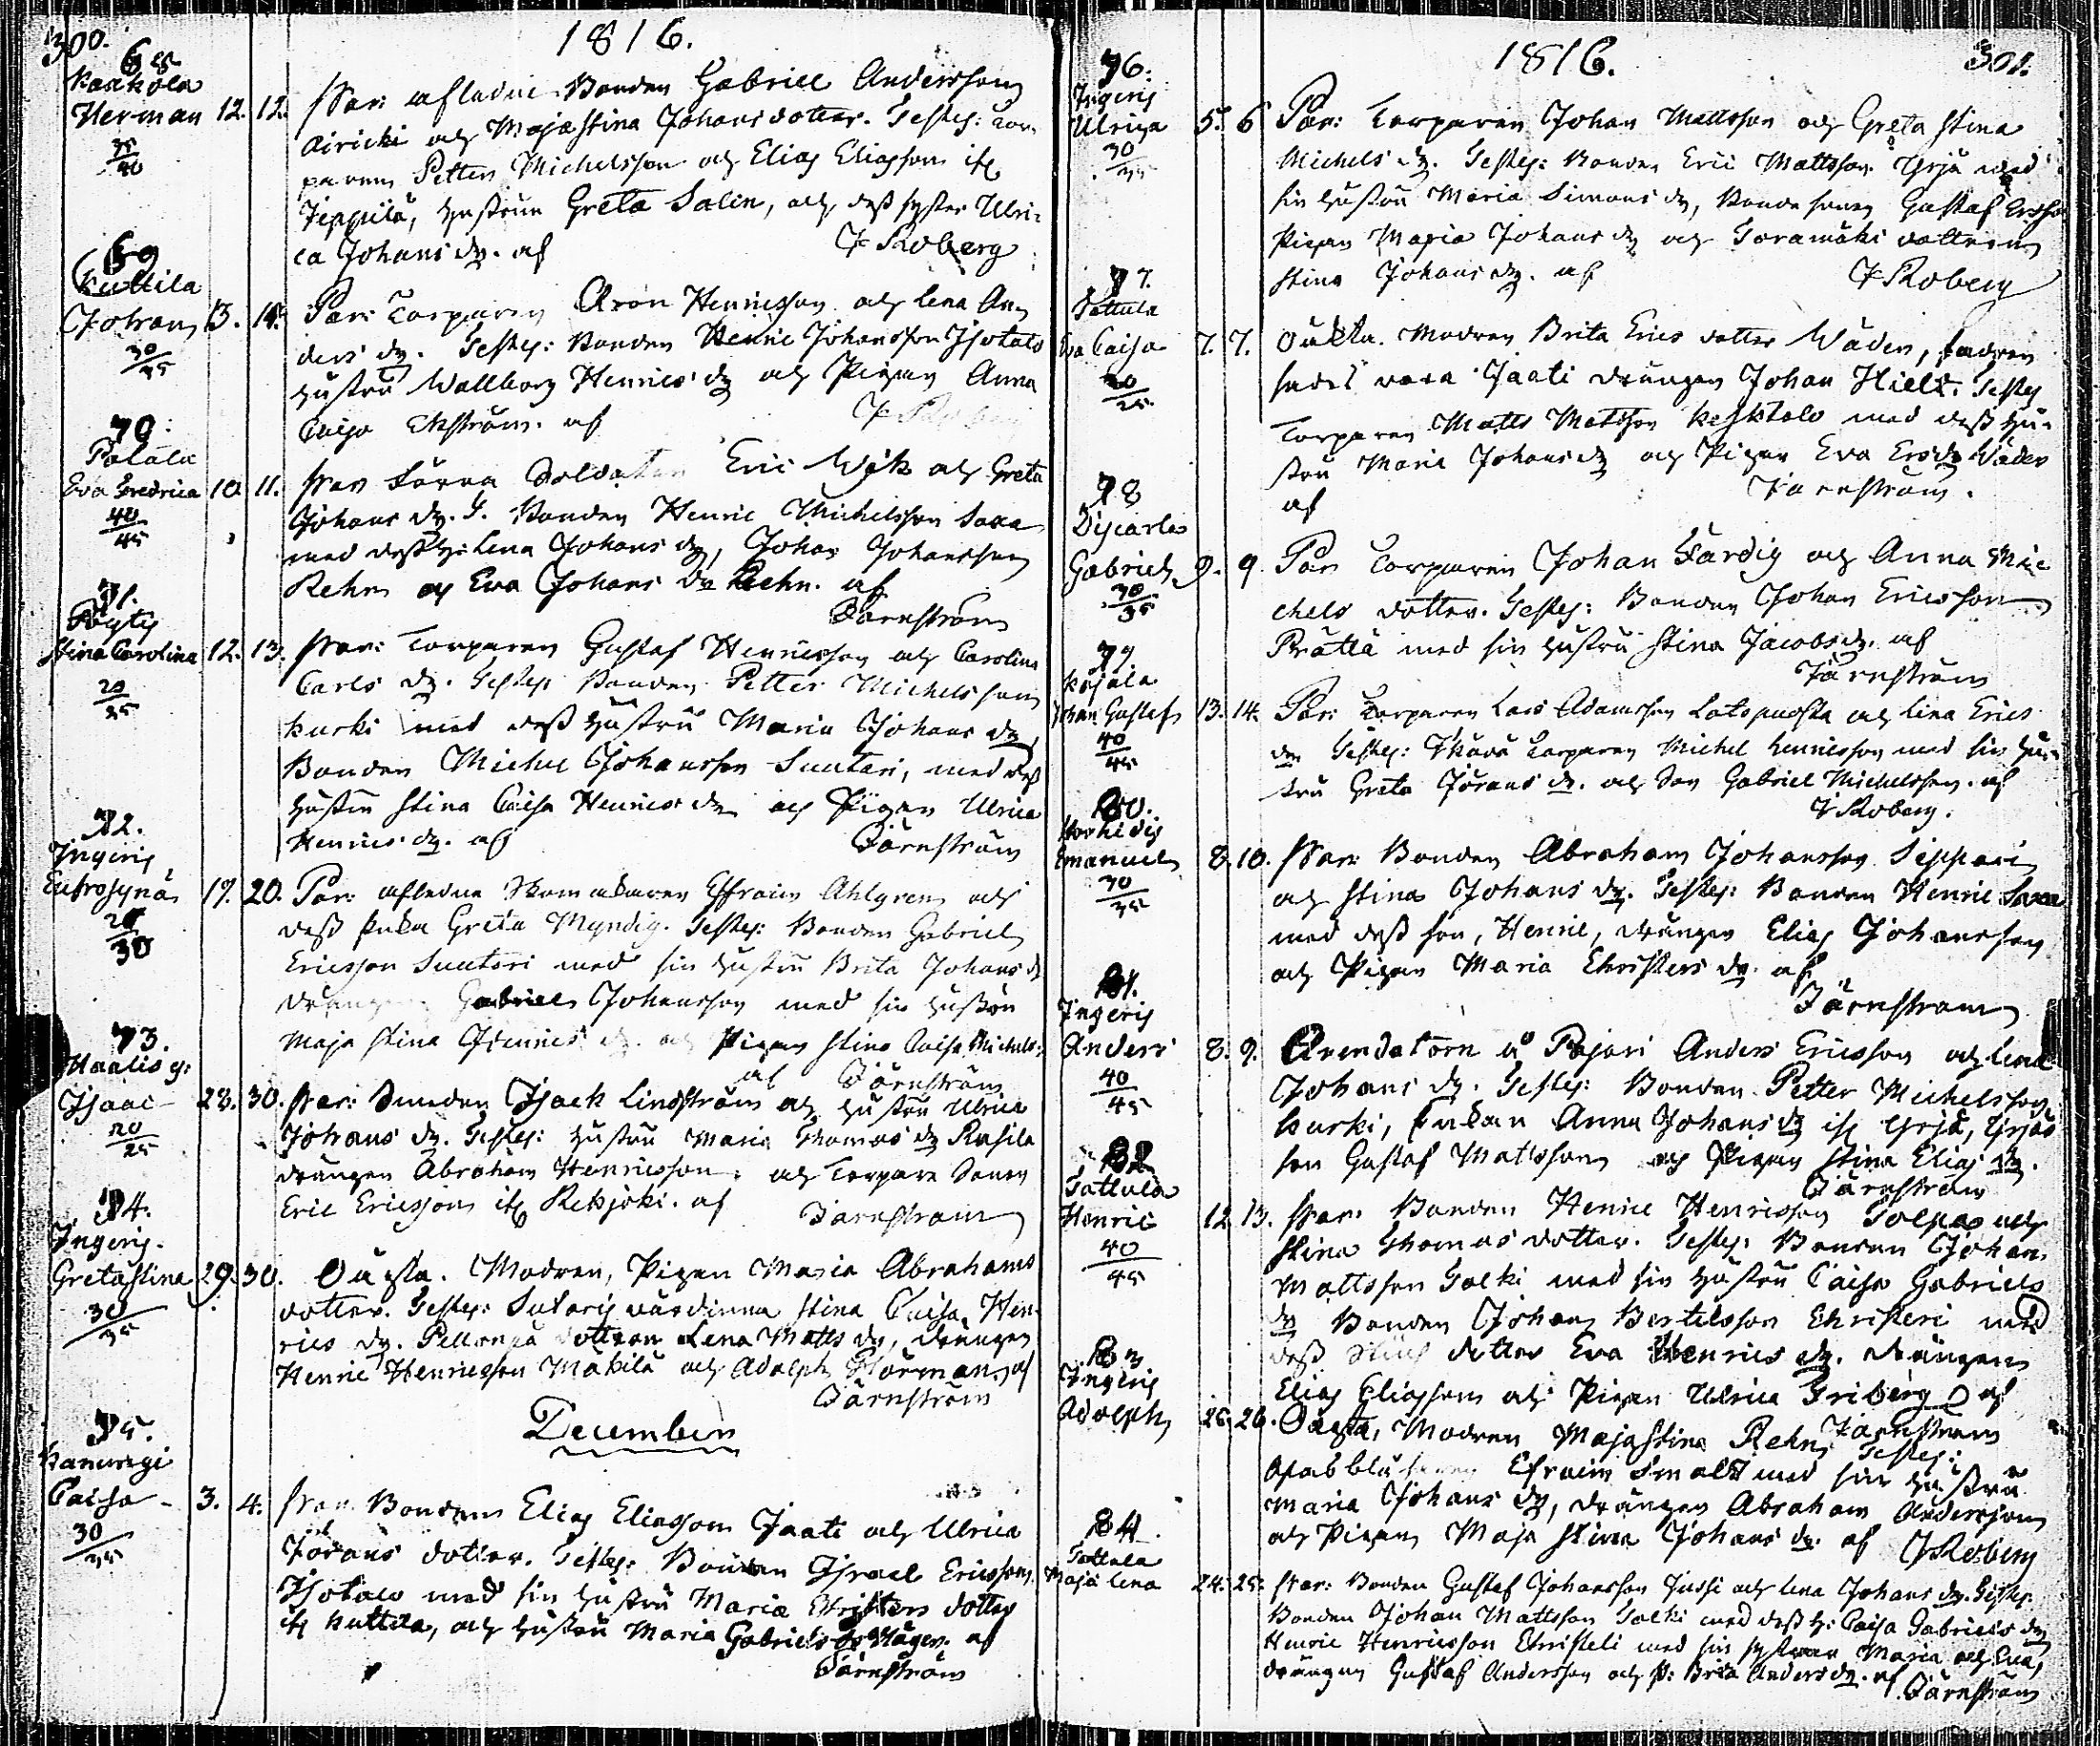 300.
1816.
68
Kaakola
Herman 12. 12. Par: afledne Bonden Gabriel Andersson
35/40
Airicki och Majastina Johansdotter. Testes: Tor-
paren Petter Michelsson och Elias Eliasson
Seppilä, hustrun Greta Salin, och dess syster Ulri-
ca Johans dr. af J Roberg
69
Kuttila
Johan 13. 14. Par: Torparen Aron Henricsson och Lena An-
30/35
ders dr. Testes: Bonden Henric Johansson Isotalo
hustru Wallborg Henrics dr och Pigan Anna
Caisa Ekström. af
70.
Palala
Eva Fredrica 10. 11. Par Förra Soldaten Eric Wijk och Greta
40/45
Johans dr. T. Bonden Henric Michelsson Saxa
med dess h: Lena Johans dr, Johan Johansson
Rehn och Eva Johans dr Rehn. af
Järnström
71.
Pöytis
Stina Carolina 12. 13. Par: Torparen Gustaf Henricsson och Carolina
20/25
Carls dr. Testes Bonden Petter Michelsson
Kurki med dess hustru Maria Johans dr,
Bonden Michel Johansson Suutari, med dess
hustru Stina Caisa Henrics dr och Pigan Ulrica
Henrics dr. af Järnström
72.
Ingeris
Eufrosyna 19. 20. Par: afledne Skomakaren Effraim Ahlgren och
30
dess Enka Greta Myndig. Testes: Bonden Gabriel
Ericsson Suutari med sin hustru Brita Johans dr
drängen Gabriel Johansson med sin hustru
Maja Stina Henrics dr. och Pigan Stina Caisa Michels
af Järnström
73.
Haalis g:
Isaac 28. 30. Par: Smeden Isack Lindström och hustru Ulrica
20/25
Johans dr. Testes: hustru Maria Thomas dr Rasila
drängen Abraham Henricsson och Torpare Sonen
Eric Ericsson Rekjoki. af Järnström
74.
Ingeris.
Greta Stina 29. 30. Oägta. Modren, Pigan Maria Abrahams
30/35
dotter. Testes: Sutaris värdinna Stina Caisa Hen-
rics dr. Pellonpä dottren Lena Matts dr, drängen
Henric Henricsson Makilä och Adolph Störman af
Järnström
December
75.
Karungi
Caisa 3. 4. Par Bonden Elias Eliasson Jaati och Ulrica
30/35
Jörans dotter. Testes: Bonden Israel Ericsson
Isotalo med sin hustru Maria Christers dotter
Kuttila, och hustru Maria Gabriels dr Häger. af
Järnström
1816.
301.
76.
Ingeris
Ulrica 5. 6 Par: Torparen Johan Mattsson och Greta Stina
30/35
Michels dr. Testes: Bonden Eric Mattsson Yrjä med
sin hustru Maria Simons dr, Bonde sonen Gustaf Ersson
Pigan Maria Johans dr och Toramäki dottren
Stina Johans dr. af J Roberg
77.
Tattula
Eva Caisa 7. 7. Oäkta. Modren Brita Erics dotter Wäder, fadren
20/25
sades vara Jaati drängen Johan Hielt. Testes
Torparen Matts Matsson Keskitalo med dess hu-
stru Maria Johans dr och Pigan Eva Ersdr Wäder
af Järnström.
78
Dijcarla
Gabriel 9. 9. Par Torparen Johan Färdig och Anna Mi-
30/35
chels dotter. Testes: Bonden Johan Ericsson
Prättä med sin hustru Stina Jacobs dr. af
Järnström
79
Kojala
Johan Gustaf 13. 14. Par: Torparen Lars Adamsson Latopuosta och Lina Erics
40/45
dr Testes: Torparen Michel Henricsson med sin hu-
stru Greta Jörans dr. och Son Gabriel Michelsson. af
J Roberg.
80.
Emanuel 8. 10. Par: Bonden Abraham Johansson Seppari
30/35
och Stina Johans dr. Testes: Bonden Henric Saxa
med dess son, Henric, drängen Elias Johansson
och Pigan Maria Christers dr. af
Järnström
81.
Ingeris
Anders 8. 9. Arendatorn å Pajari Anders Ericsson och Lena
40/45
Johans dr. Testes: Bonden Petter Michelsson
Kurki, Enkan Anna Johans dr Yrjä, Yrjäs
son Gustaf Mattsson och Pigan Stina Elias dr.
Järnström
82
Tattula
Henric 12. 13. Par: Bonden Henric Henricsson Tolpo och
40/45
Stina Thomas dotter. Testes: Bonden Johan
Mattsson Tolki med sin hustru Caisa Gabriels
dr Bonden Johan Bertelsson Christeri med
dess dotter Eva Henrics dr. drängen
Elias Eliasson och Pigan Ulrica Friberg af
Järnström
83
Ingeris
Adolph 26. 26. Oägta, Modren Majastina Rehn, Testes:
Efraim Smalt med sin hustru
Maria Johans dr, drängen Abraham Andersson
och Pigan Maja Stina Johans dr. af J Roberg
84
Tattula
Maja Lena 24. 25. Par: Bonden Gustaf Johansson Jussi och Lena Johans dr. Testes:
Bonden Johan Mattsson Tolki med dess h: Caisa Gabriels dr
Henric Henricsson Christeli med sin systrar Maria och Eva,
drängen Gustaf Andersson och P: Brita Anders dr. af
Järnström